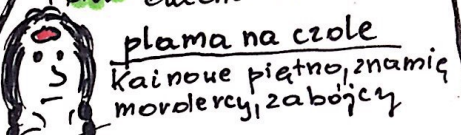 plama na czole
Kainowe piętno, znamię
mordercy, zabójcy